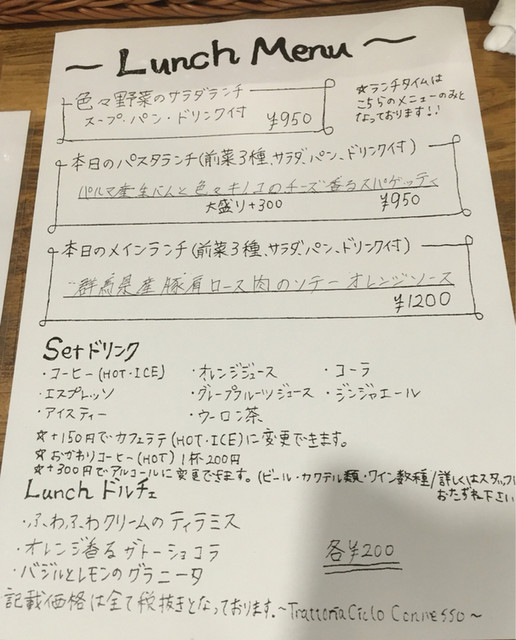 〜 Lunch Menu 〜
色々野菜のサラダランチ
スープ・パン・ドリンク付 ¥950
☆ランチタイムは
こちらのメニューのみと
なっております!!
本日のパスタランチ(前菜3種、サラダ、パン、ドリンク付)
パルマ産生ハムと色々キノコのチーズ香るスパゲッティ
大盛り+300 ¥950
本日のメインランチ(前菜3種、サラダ、パン、ドリンク付)
群馬県産豚肩ロース肉のソテー オレンジソース
¥1200
Setドリンク
・コーヒー(HOT・ICE) ・オレンジジュース ・コーラ
・エスプレッソ ・グレープフルーツジュース ・ジンジャエール
・アイスティー ・ウーロン茶
☆+150円でカフェラテ(HOT・ICE)に変更できます。
☆おかわりコーヒー(HOT) 1杯200円
☆+300円でアルコールに変更できます。(ビール・カクテル類・ワイン数種/詳しくはスタッフに
おたずね下さい
Lunch ドルチェ
・ふわふわクリームのティラミス
・オレンジ香るガトーショコラ
・バジルとレモンのグラニータ
各¥200
記載価格は全て税抜きとなっております。〜Trattoria Ciclo Connesso〜